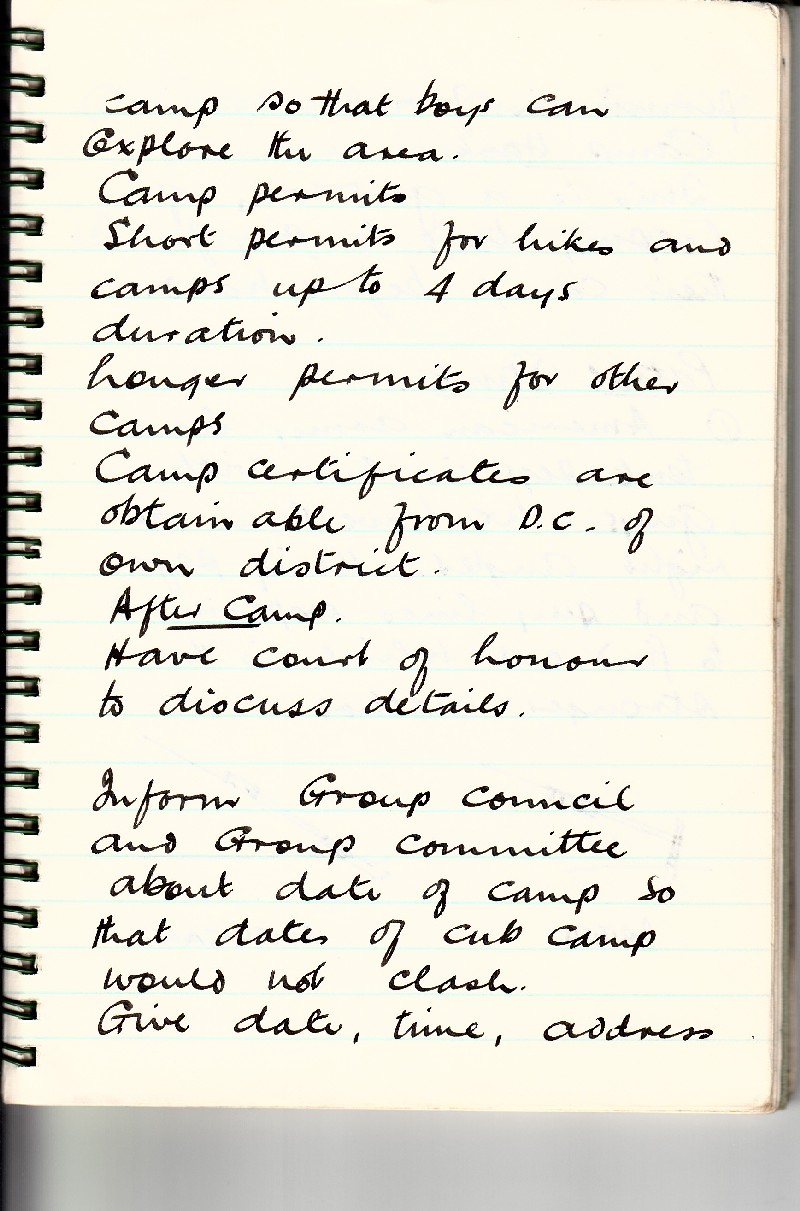 camp so that boys can
Explore the area.
Camp permits
Short permits for hikes and
camps up to 4 days
duration.
Longer permits for other
camps
Camp certificates are
obtainable from D.C. of
own district.
After Camp.
Have court of honour
to discuss details.
Inform Group council
and Group committee
about date of camp so
that dates of cub camp
would not clash.
Give date, time, address